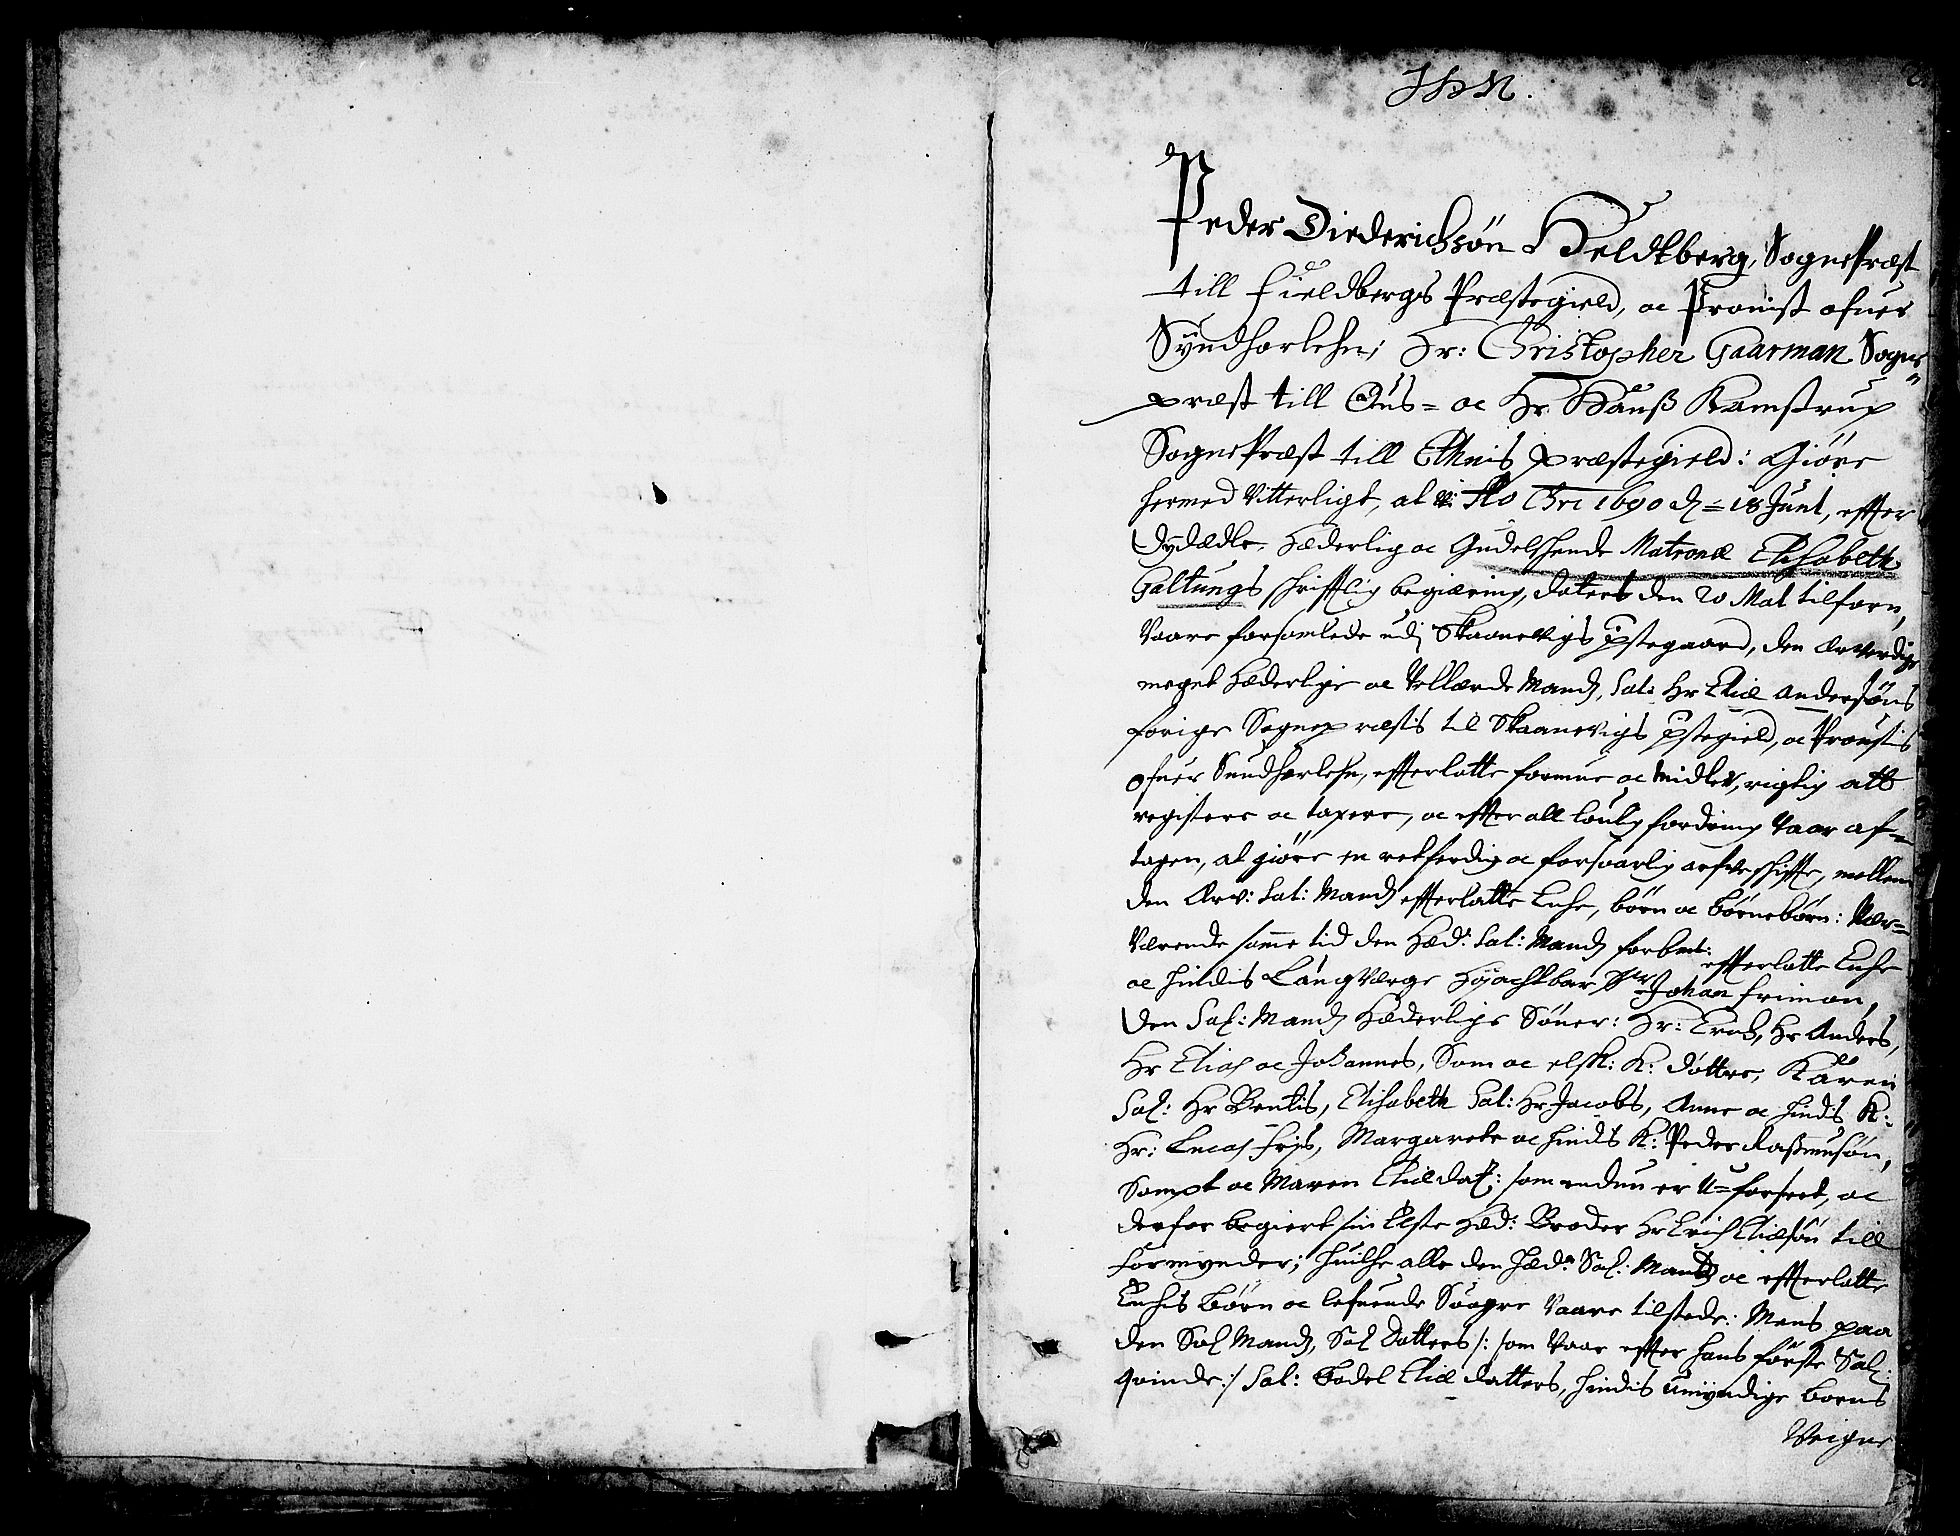 J H N.
Peder Diederichsøn Heldtberg, SognePræst
till Fieldbergs Præstegield, oc Provist ofuer
Syndhorlehn; Hr: Christopher Gaarman Sogne
præst till Øus= oc Hr. Hanß Kamstrup
SognePræst till Ethnis præstegield: Giøre
hermed Vitterligt, at Ao Chri 1690 d = 18 Juni, efter
Dydædle, Hæderlig oc Gudelschende Matronæ Elisabeth
Galtungs schrifftlig begiæring, daterit den 20 Mai tilforn,
Vaare forsamlede udj Skaanevigs pstegaard, den Ærverdige
meget Hæderlige oc Vellærde Mand, Sal: Hr Eliæ Andersøns
forige Sognepræstis til Skaanevigs pstegield, oc Provstis
ofuer Sundhorlehn, efterlatte formue oc midler, rigtig att
registere oc taxere, oc efter all louly fordring Vaar af=
tagen, at giøre en retferdig oc forsvarlig arfveschifte, mellem
den Ærv: Sal: Mands efterlatte Enche, børn oc Børnebørn: Nær=
Værende samme tid den Hæd: Sal: Mands forbemt: efterlatte Enche
oc hindis Laugværge Høyachtbar Sr Johan Friman,
Den Sal: Mands Hæderlige Sønner: Hr: Erich, Hr Anders,
Hr Elias oc Johannes, Som oc elsk: K: døttre, Karen
Sal: Hr Bentis, Elisabeth Sal: Hr Jacobs, Anne oc hindis K:
Hr: Lucas Friis, Margarete oc hindis K: Peder Rasmusøn,
Sampt oc Maren Eliædat: som endnu er U=forseet, oc
derfor begiert sin Elste Hæd: Broder Hr Erich Eliæsøn till
Formynder; huilche alle den Hæd: Sal: Mands oc efterlatte
Enchis Børn oc lefuende Svogre Vaare tilstede: Mens paa
den Sal Mands, Sal Datters /: som Vaar efter hans første Sal:
qvinde:/ Sal: Bodel Eliæ datters, hindis umyndige børns
Veigne